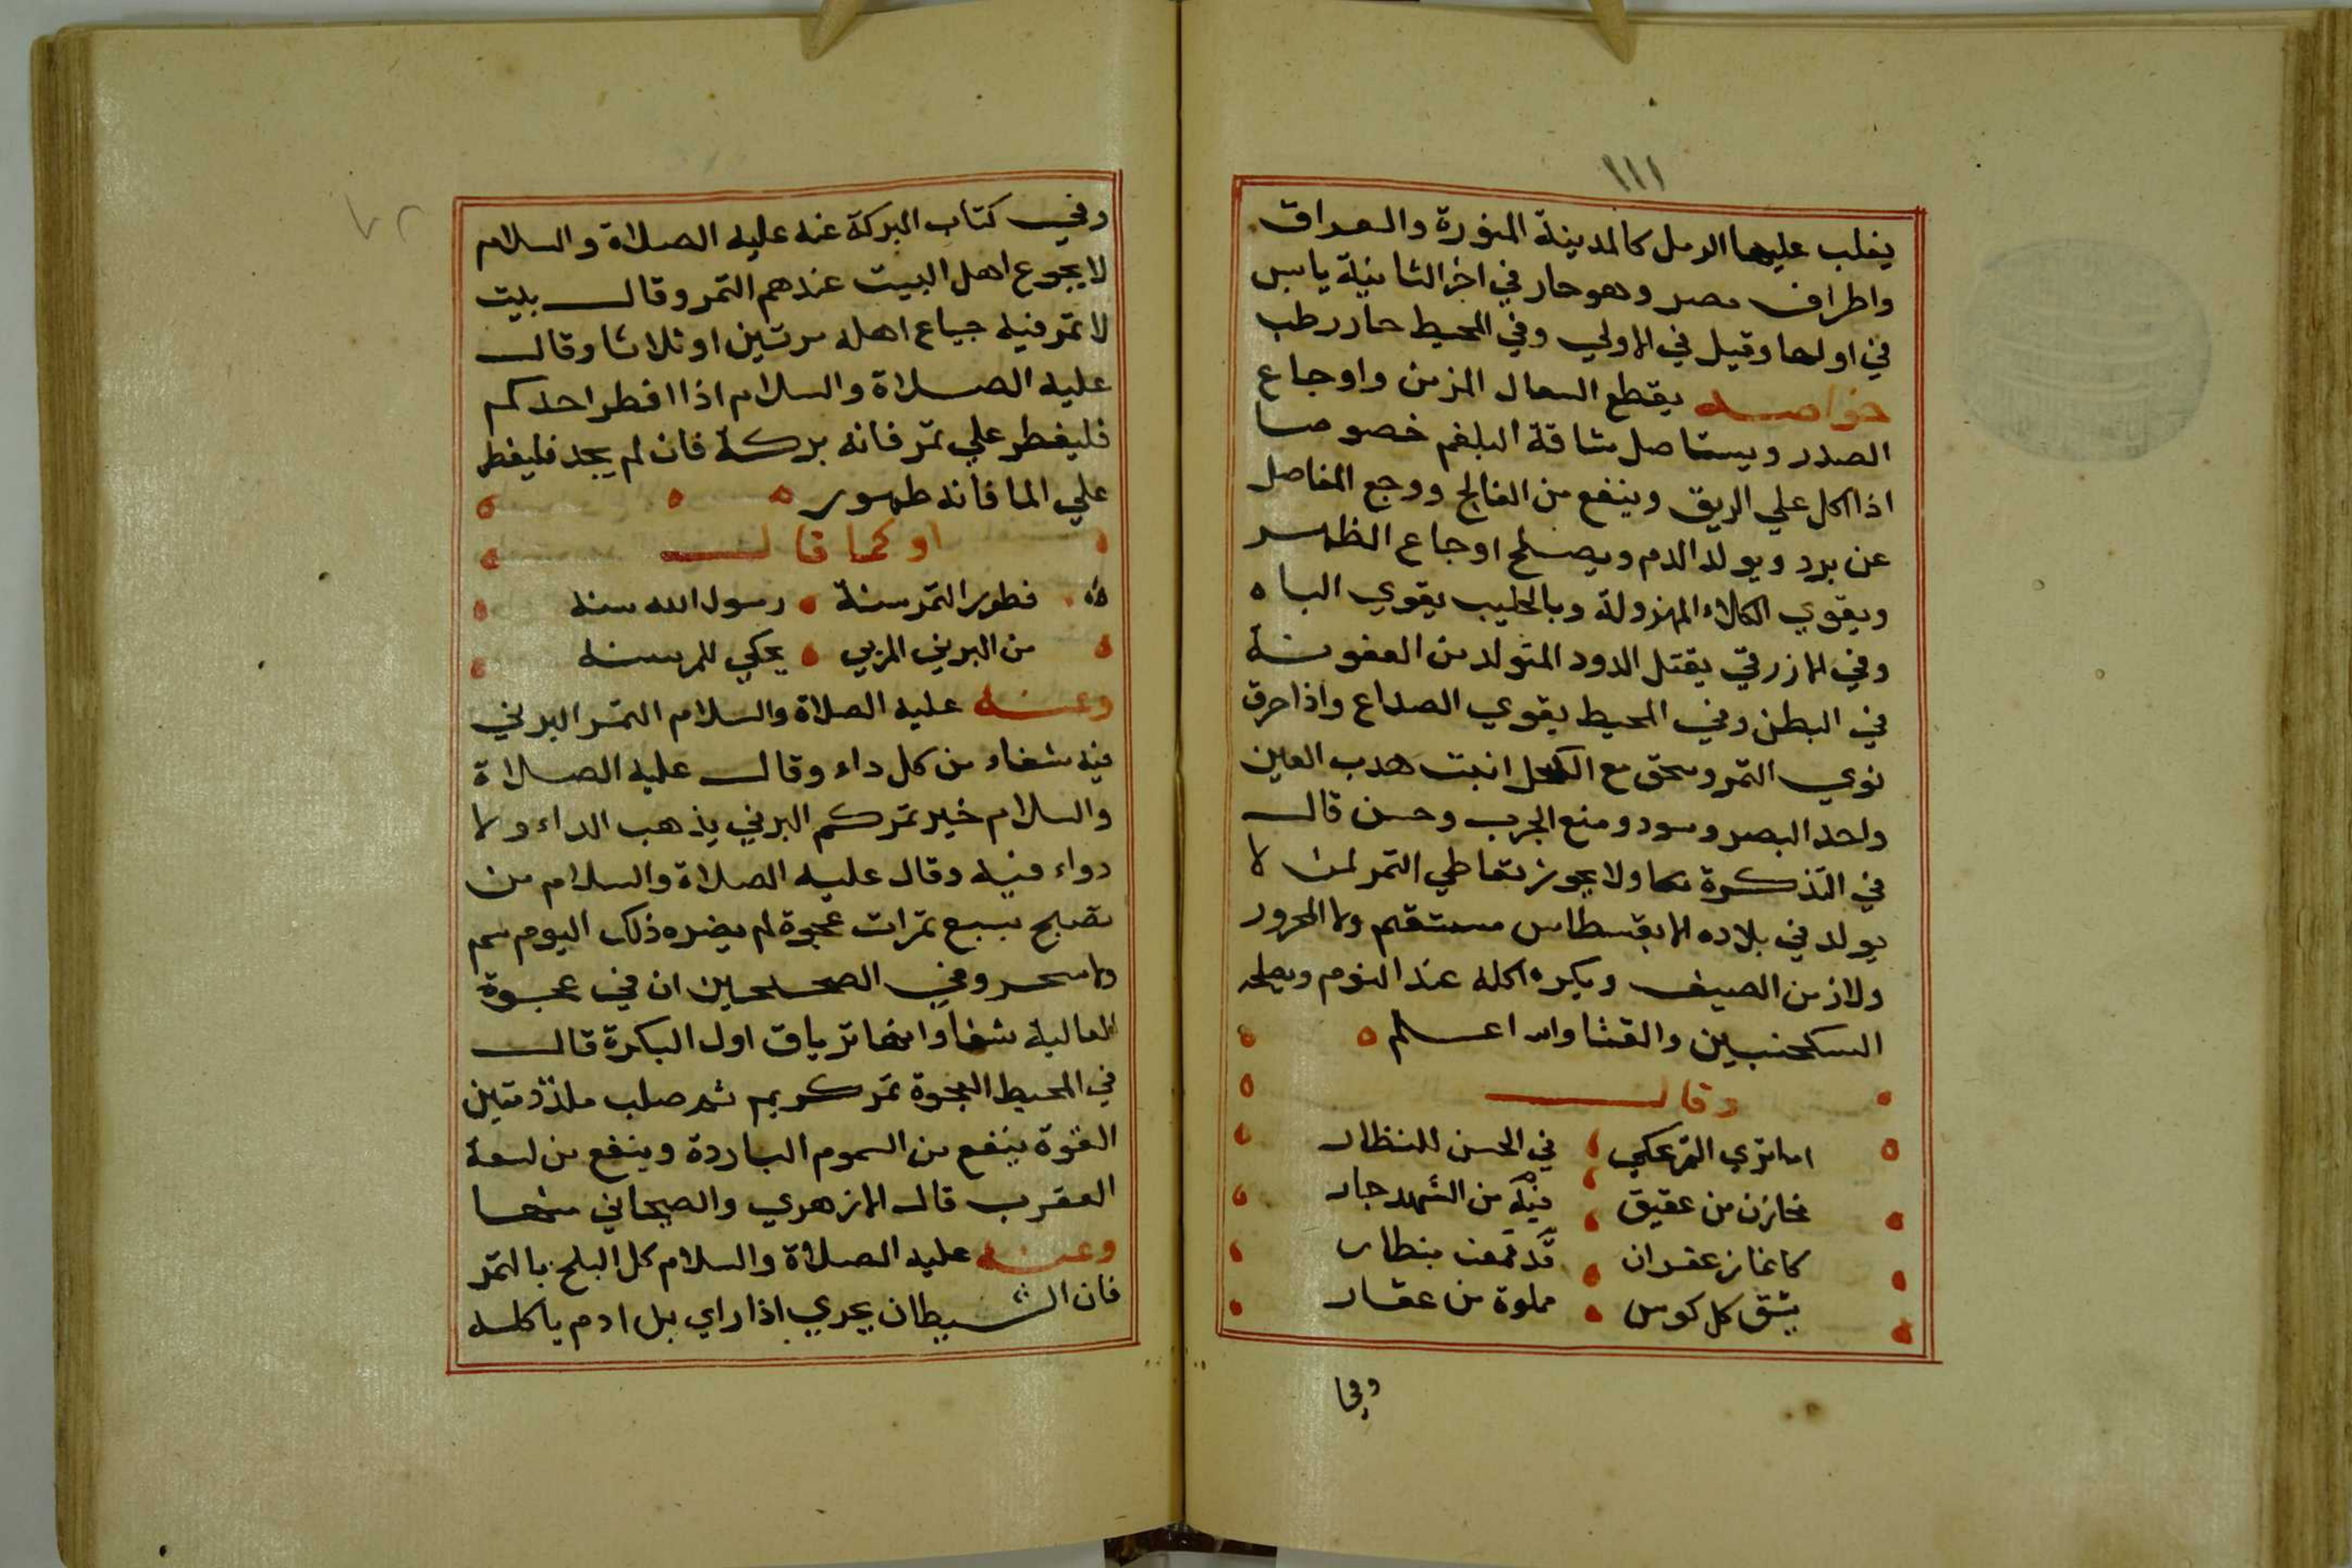 ١١١
يغلب عليها الرمل كالمدينة المنورة والعراق
واطراف مصر وهو حار في اخر الثانية يابس
في اولها وقيل في الاولي وفي المحيط حار رطب
خواصه يقطع السعال المزمن واوجاع
الصدر ويستاصل شاقة البلغم خصوصا
اذا اكل علي الريق وينفع من الفالج ووجع المفاصل
عن برد ويولد الدم ويصلح اوجاع الظهر
ويقوي الكلاء المهزولة وبالحليب يقوي الباه
وفي الازرقي يقتل الدود المتولد من العفونة
في البطن وفي المحيط يقوي الصداع واذا حرق
نوي التمر وسحق مع الكحل انبت هدب العين
واحد البصر وسود ومنع الجرب وحسن قال
في التذكرة ولا يجوز تعاطي التمر لمن لا
يولد في بلاده الا بقسطاس مستقيم ولا المحرور
ولا زمن الصيف ويكره اكله عند النوم ويصلحه
السكنجبين والقثا والله اعلم
وقال
اما تري التمر يحكي في الحسن للنظار
مخازن من عقيق من الشهد جار
كانما زعفران قد قمعت بنظار
يشق كل كوس مملوة من عقار
وفي
وفي كتاب البركة عنه عليه الصلاة والسلام
لا يجوع اهل البيت عندهم التمر وقال بيت
لا تمر فيه جياع اهله مرتين او ثلاثا وقال
عليه الصلاة والسلام اذا افطر احدكم
فليفطر علي تمر فانه بركة فان لم يجد فليفطر
علي الما فانه طهور
او كما قال
فطور التمر سنة رسول الله سنه
من البرني المربي يحكي للمرسنه
وعنه عليه الصلاة والسلام التمر البرني
فيه شفاء من كل داء وقال عليه الصلاة
والسلام خير تمركم البرني يذهب الداء ولا
دواء فيه وقال عليه الصلاة والسلام من
تصبح بسبع تمرات عجوة لم يضره ذلك اليوم سم
ولا سحر وفي الصحيحين ان في عجوة
العالية شفا وانها ترياق اول البكرة قال
في المحيط العجوة تمر كريم صلب ملذذ متين
القوة ينفع من السموم الباردة وينفع من لسعة
العقرب قال الازهري والصيحاني منها
وعنه عليه الصلاة والسلام كل البلح بالتمر
فان الشيطان يجري اذا راي بل ادم ياكله